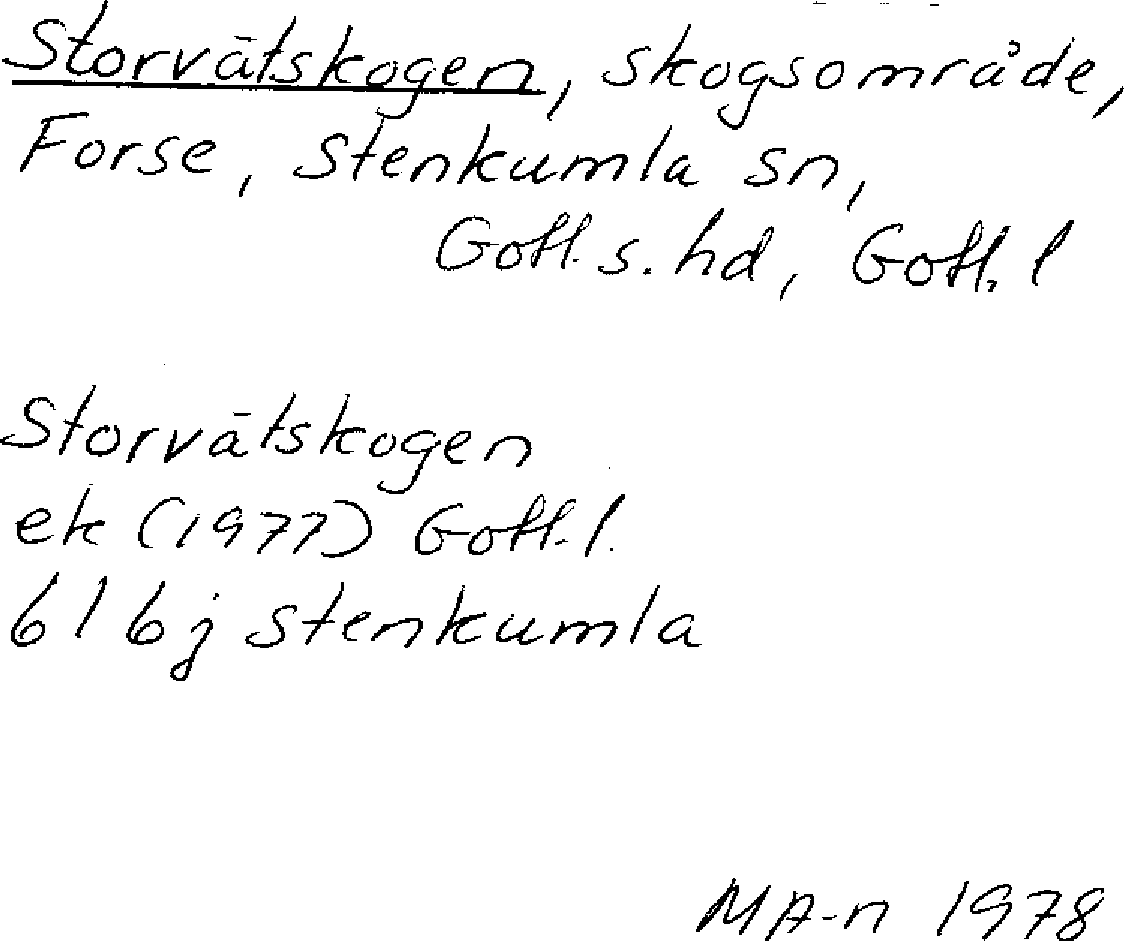 Storvätskogen, skogsområde,
Forse, Stenkumla sn,
Gotl. s. hd, Gotl. l
Storvätskogen
ek (1977) Gotl. l.
6I6j Stenkumla
MA-n 1978